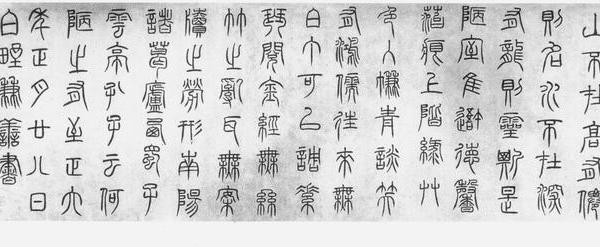 山不在高有僊
則名水不在深
有龍則靈斯是
陋室隹吾德馨
菭痕上階綠艸
色入簾青談笑
有鴻儒往來無
白丁可以調素
琴閱金經無絲
竹之亂耳無案
牘之勞形南陽
諸葛廬西蜀子
雲亭孔子云何
陋之有至正六
年正月廿八日
白野兼善書